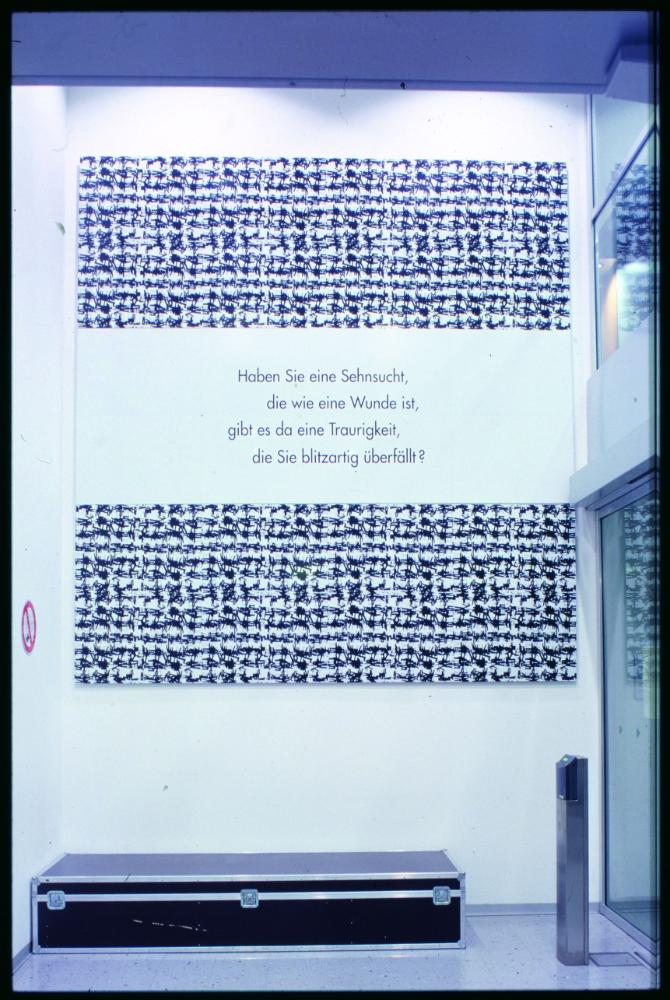 Haben Sie eine Sehnsucht,
die wie eine Wunde ist,
gibt es da eine Traurigkeit,
die Sie blitzartig überfällt?